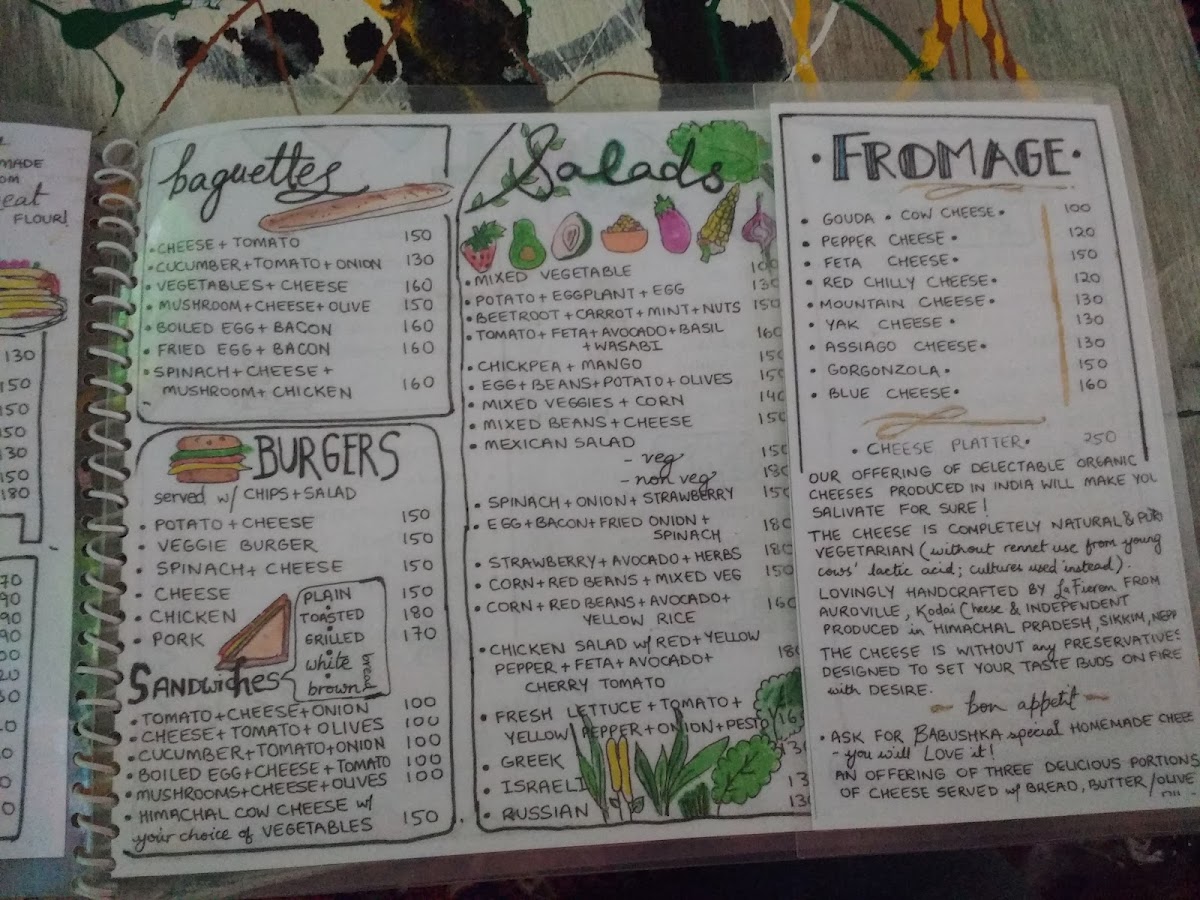 MADE
OM
eat
FLOUR!
130
150
150
150
130
150
180
70
90
90
90
baguettes
• CHEESE + TOMATO 150
• CUCUMBER + TOMATO + ONION 130
• VEGETABLES + CHEESE 160
• MUSHROOM + CHEESE + OLIVE 150
• BOILED EGG + BACON 160
• FRIED EGG + BACON 160
• SPINACH + CHEESE +
MUSHROOM + CHICKEN 160
BURGERS
served w/ CHIPS + SALAD
• POTATO + CHEESE 150
• VEGGIE BURGER 150
• SPINACH + CHEESE 150
• CHEESE 150
• CHICKEN 180
• PORK 170
PLAIN
TOASTED
GRILLED
white
brown
bread
SANDWiches
• TOMATO + CHEESE + ONION 100
• CHEESE + TOMATO + OLIVES 100
• CUCUMBER + TOMATO + ONION 100
• BOILED EGG + CHEESE + TOMATO 100
• MUSHROOMS + CHEESE + OLIVES 100
• HIMACHAL COW CHEESE w/
your choice of VEGETABLES 150
Salads
• MIXED VEGETABLE 100
• POTATO + EGGPLANT + EGG 130
• BEETROOT + CARROT + MINT + NUTS 150
• TOMATO + FETA + AVOCADO + BASIL 160
+ WASABI
• CHICKPEA + MANGO 150
• EGG + BEANS + POTATO + OLIVES 150
• MIXED VEGGIES + CORN 140
• MIXED BEANS + CHEESE 150
• MEXICAN SALAD
- veg 150
- non veg 180
• SPINACH + ONION + STRAWBERRY 150
• EGG + BACON + FRIED ONION + 180
SPINACH
• STRAWBERRY + AVOCADO + HERBS 180
• CORN + RED BEANS + MIXED VEG 150
• CORN + RED BEANS + AVOCADO + 160
YELLOW RICE
• CHICKEN SALAD w/ RED + YELLOW 180
PEPPER + FETA + AVOCADO +
CHERRY TOMATO
• FRESH LETTUCE + TOMATO +
YELLOW PEPPER + ONION + PESTO 165
• GREEK 130
• ISRAELI 13
• RUSSIAN 130
• FROMAGE •
• GOUDA • COW CHEESE • 100
• PEPPER CHEESE • 120
• FETA CHEESE • 150
• RED CHILLY CHEESE • 120
• MOUNTAIN CHEESE • 130
• YAK CHEESE • 130
• ASSIAGO CHEESE • 130
• GORGONZOLA • 150
• BLUE CHEESE • 160
• CHEESE PLATTER • 250
OUR OFFERING OF DELECTABLE ORGANIC
CHEESES PRODUCED IN INDIA WILL MAKE YOU
SALIVATE FOR SURE!
THE CHEESE IS COMPLETELY NATURAL & PURE
VEGETARIAN (without rennet use from young
cows' lactic acid; cultures used instead).
LOVINGLY HANDCRAFTED BY La Fieron FROM
AUROVILLE, Kodai Cheese & INDEPENDENT
PRODUCED in HIMACHAL PRADESH, SIKKIM,
THE CHEESE IS WITHOUT any PRESERVATIVES
DESIGNED TO SET YOUR TASTE BUDS ON FIRE
with DESIRE.
bon appetit
• ASK FOR BABUSHKA special HOMEMADE CHEE
- you will LOVE it!
AN OFFERING OF THREE DELICIOUS PORTIONS
OF CHEESE SERVED w/ BREAD, BUTTER/OLIVE